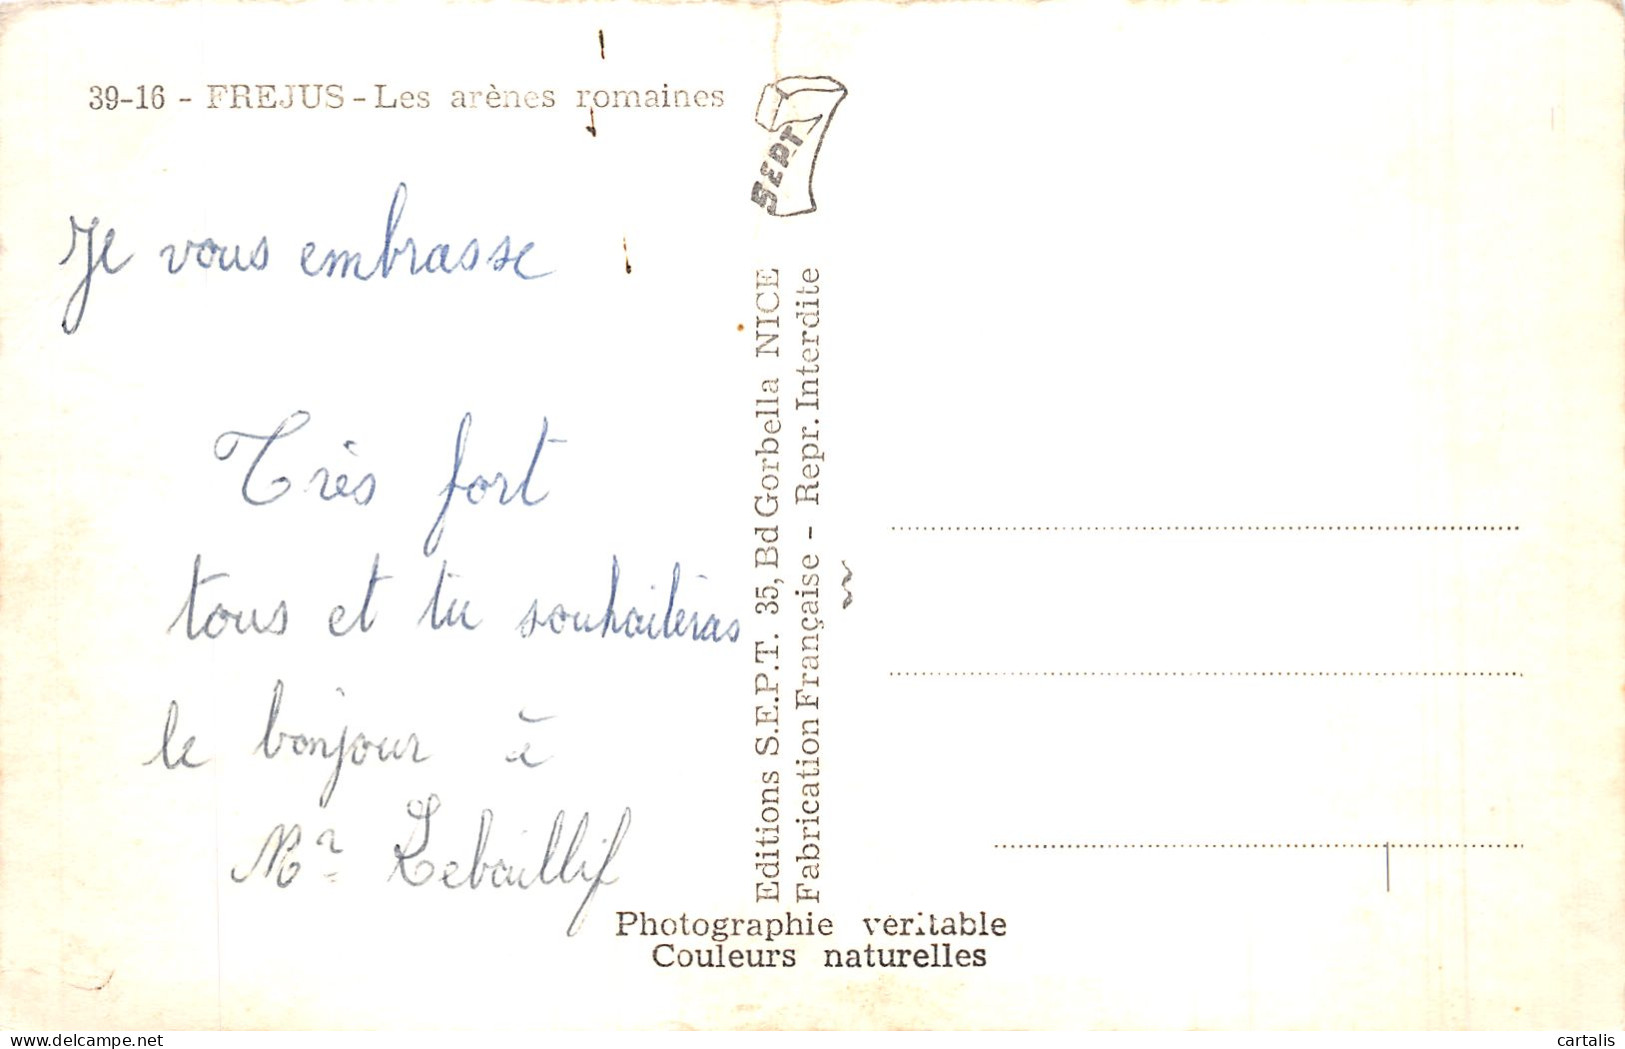 39-16 - FREJUS - Les arènes romaines
SEPT
Je vous embrasse
Très fort
tous et tu souhaiteras
le bonjour à
Mr Lebaillif
Editions S.E.P.T. 35, Bd Gorbella NICE
Fabrication Française - Repr. Interdite
Photographie véritable
Couleurs naturelles
delcampe.net
cartalis